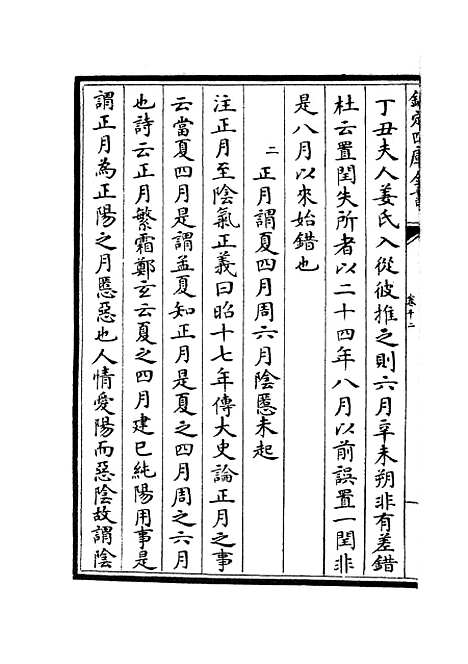 欽定四庫全書
卷十二
丁丑夫人姜氏入從彼推之則六月辛未朔非有差錯
杜云置閏失所者以二十四年八月以前誤置一閏非
是八月以來始錯也
二 正月謂夏四月周六月陰慝未起
注正月至陰氣正義曰昭十七年傳大史論正月之事
云當夏四月是謂孟夏知正月是夏之四月周之六月
也詩云正月繁霜鄭玄云夏之四月建巳純陽用事是
謂正月為正陽之月慝惡也人情愛陽而惡陰故謂陰